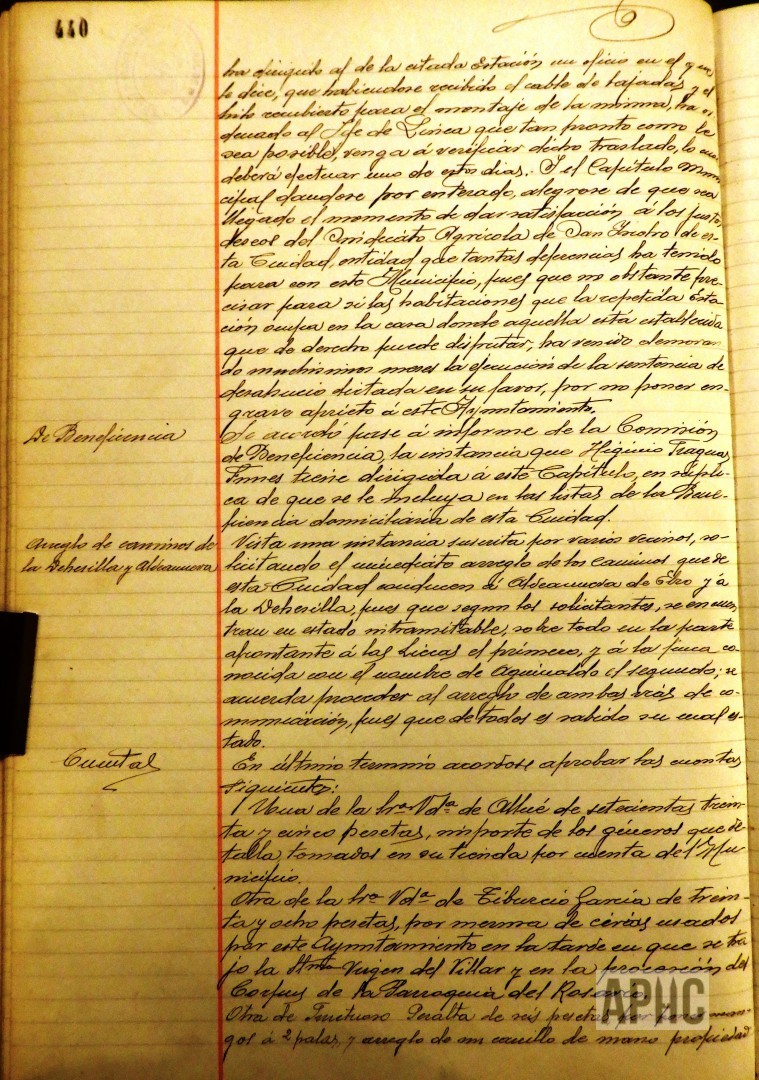 440
ha dirigido al de la citada Estación un oficio en el que
le dice, que habiendose recibido el cable de bajadas y el
hilo recubierto para el montaje de la misma, ha or-
denado al Jefe de Linea que tan pronto como le
sea posible, venga á verificar dicho traslado, lo cual
deberá efectuar uno de estos dias. Y el Capítulo Muni-
cipal dandose por enterado, alegrose de que sea
llegado el momento de dar satisfacción á los justos
deseos del Sindicato Agrícola de San Isidro de es-
ta Ciudad, entidad que tantas deferencias ha tenido
para con este Municipio, pues que no obstante pre-
cisar para si las habitaciones que la repetida Esta-
ción ocupa en la casa donde aquella está establecida
que de derecho puede disfrutar, ha venido demoran-
do muchisimos meses la ejecución de la sentencia de
desahucio dictada en su favor, por no poner en
grave aprieto á este Ayuntamiento.
De Beneficencia
Se acordó pase á informe de la Comisión
de Beneficencia, la instancia que Higinio
tiene dirigida á este Capítulo, en súpli-
ca de que se le incluya en las listas de la Bene-
ficencia domiciliaria de esta Ciudad.
Arreglo de caminos de
la Dehesilla y Aldeanueva
Vista una instancia suscrita por varios vecinos, so-
licitando el inmediato arreglo de los caminos que de
esta Ciudad conducen á Aldeanueva de Ebro y á
la Dehesilla, pues que segun los solicitantes, se encuen-
tran en estado intransitable, sobre todo en la parte
afrontante á las Liecas el primero, y á la finca co-
nocida con el nombre de Aguinaldo el segundo; se
acuerda proceder al arreglo de ambas vías de co-
municación, pues que de todos es sabido su mal es-
tado.
Cuentas
En último termino acordose aprobar las cuentas
siguientes:
Una de la Sra. Vda. de Allué de setecientas trein-
ta y cinco pesetas, importe de los géneros que de-
talla, tomados en su tienda por cuenta del Mu-
nicipio.
Otra de la Sra. Vda. de Tiburcio García de trein-
ta y ocho pesetas, por merma de cirios usados
por este Ayuntamiento en la tarde en que se tra-
jo la Stma. Virgen del Villar y en la procesión del
Corpus de la Parroquia del Rosario.
Otra de Fructuoso Peralta de seis pesetas por man-
gos á 2 palas, y arreglo de un carrillo de mano propiedad
APHC